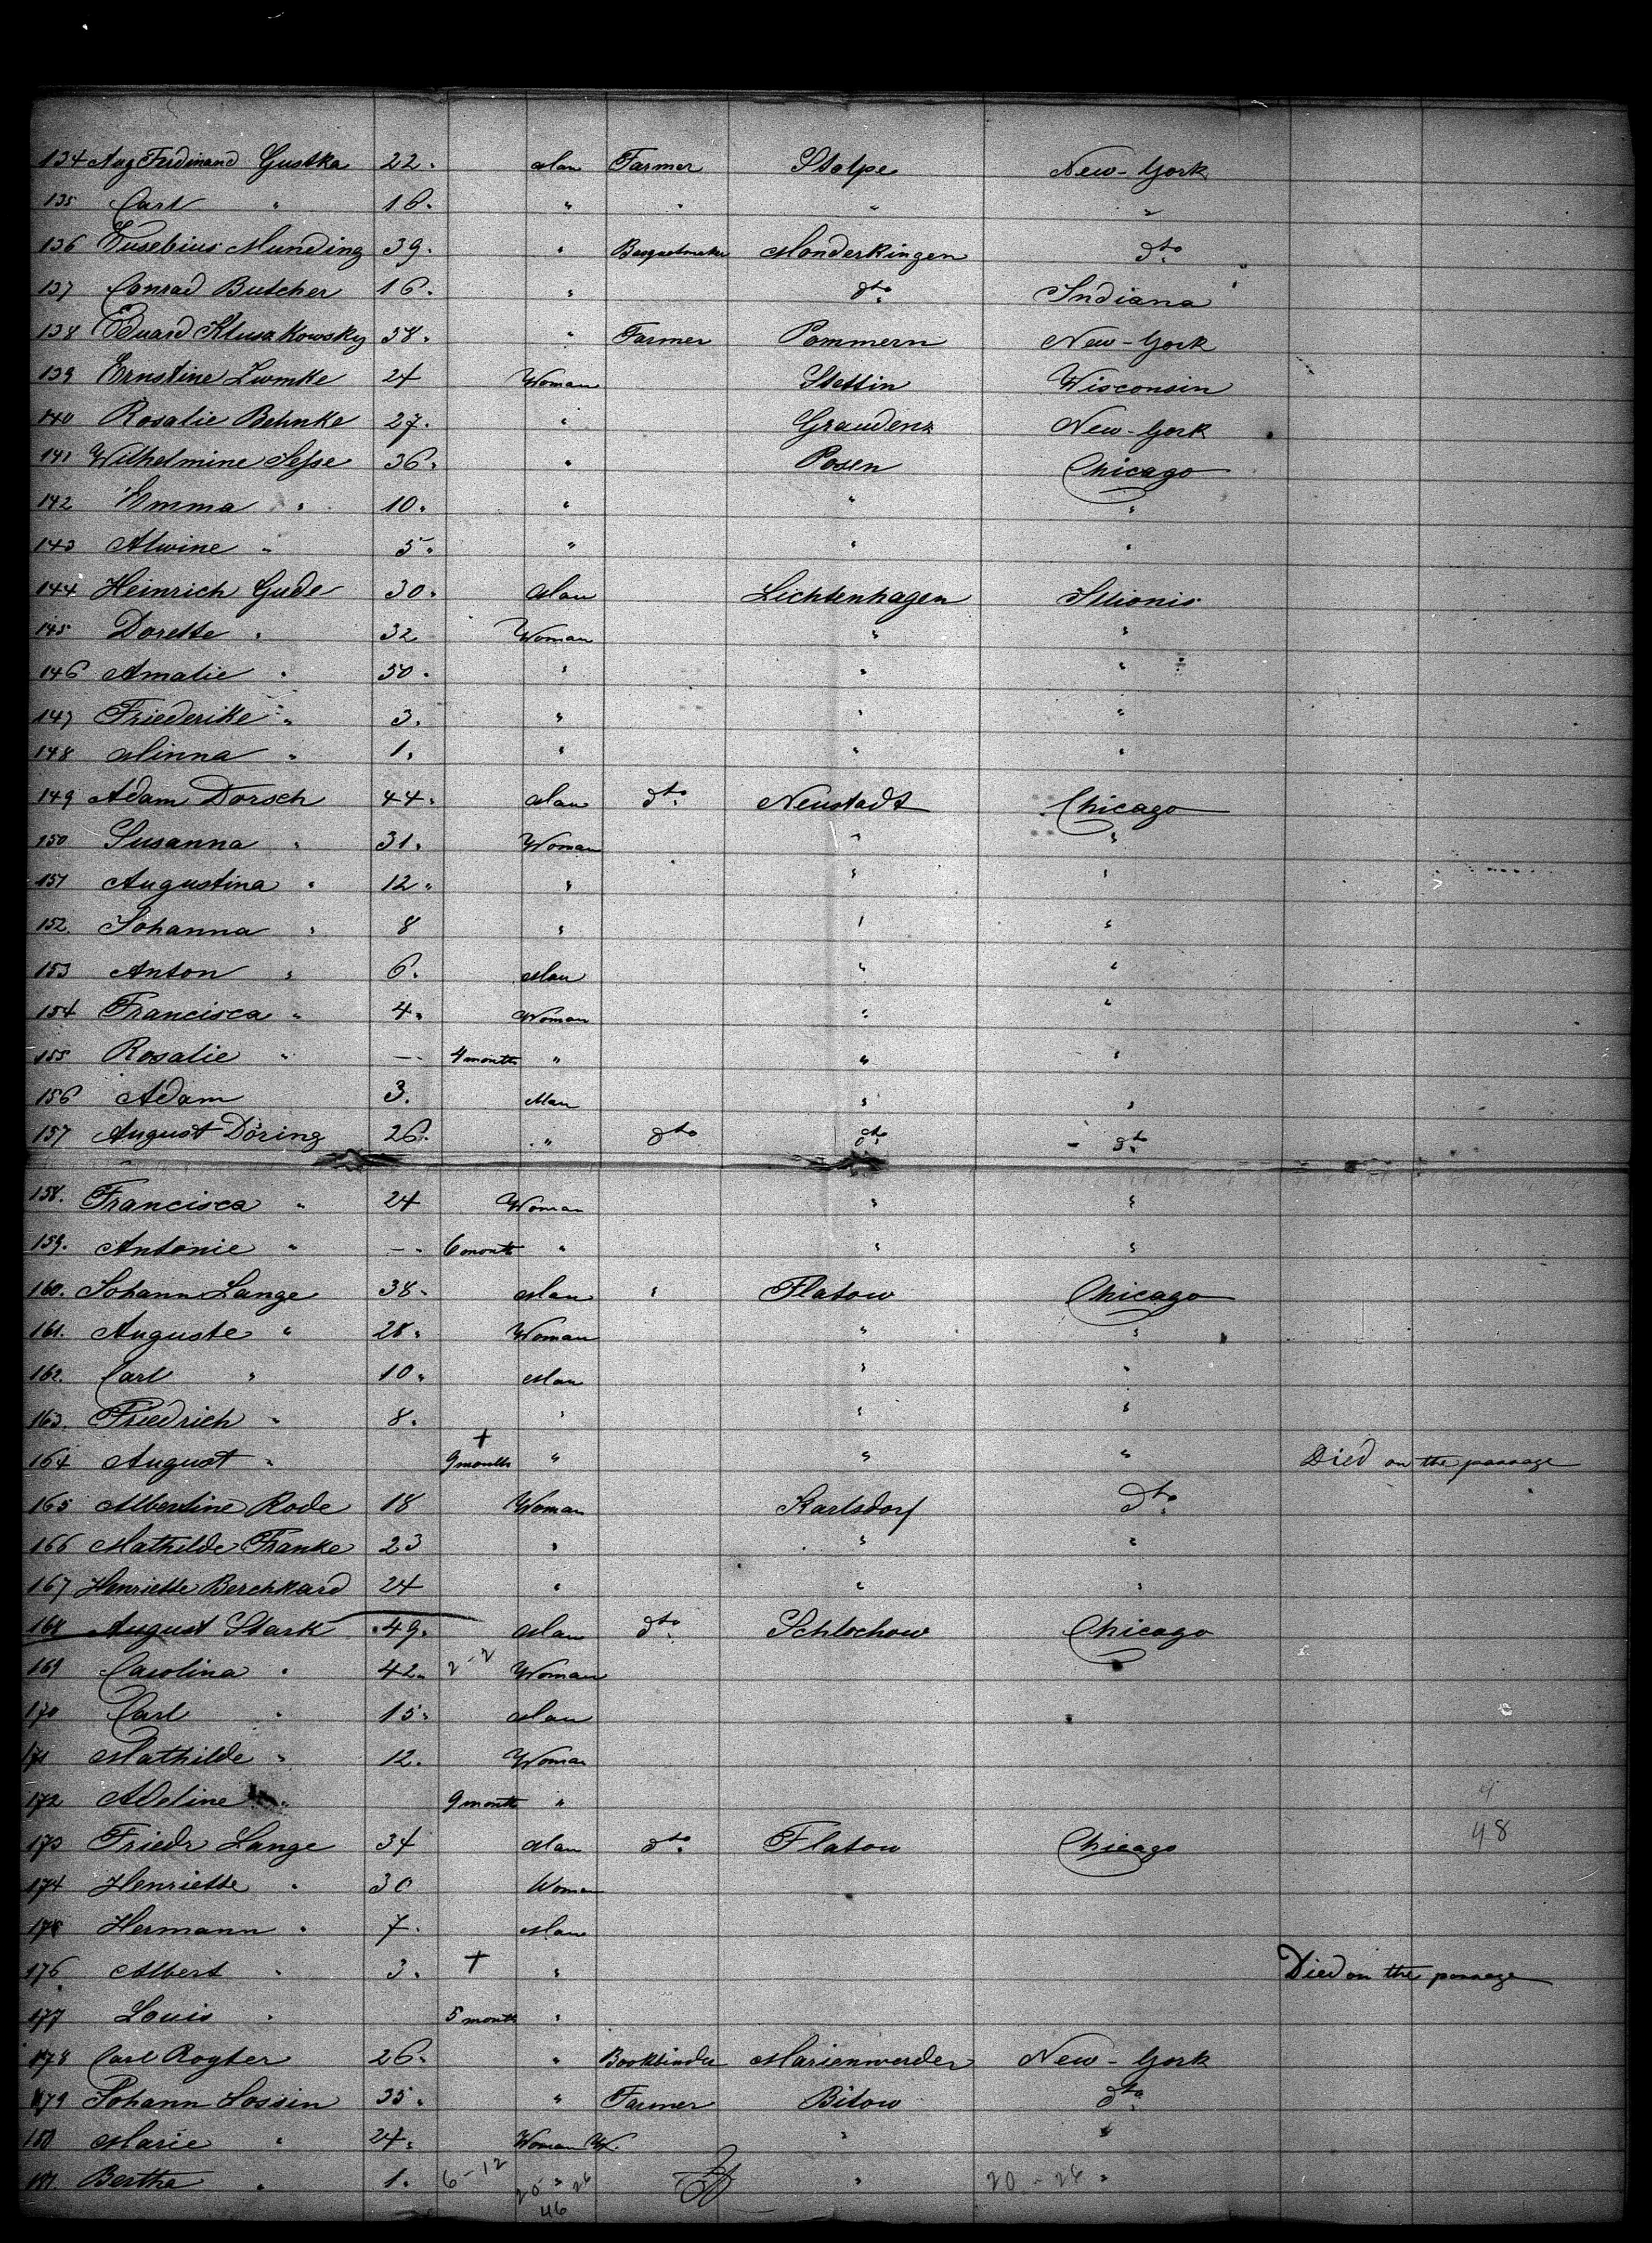 134 Aug Ferdinand Gustka 22. Man Farmer Stolpe New-York
135 Carl " 16. " " " "
136 Eusebius Munding 39. " Basquetmaker Monderkingen dto
137 Conrad Butcher 16. " dto Indiana
138 Eduard Klusakowsky 38. " Farmer Pommern New-York
139 Ernstine Lumke 24 Woman Stettin Wisconsin
140 Rosalie Behnke 27. " Graudenz New-York
141 Wilhelmine 36. " Posen Chicago
142 Emma " 10. " " "
143 Alwine " 5. " " "
144 Heinrich Gude 30. Man Lichtenhagen Illionis
145 Dorette " 32 Woman " "
146 Amalie " 30. " " "
147 Friederike " 3. " " "
148 Minna " 1. " " "
149 Adam Dorsch 44. Man dto. Neustadt Chicago
150 Susanna " 31. Woman " "
151 Augustina " 12. " " "
152. Johanna " 8 " " "
153 Anton " 6. Man " "
154 Francisca " 4. Woman " "
155 Rosalie " — 4 months " " "
156 Adam 3. Man " "
157 August Döring 26. " dto dto - dto.
158. Francisca " 24 Woman " "
159. Antonie " — 6 month " " "
160. Johann Lange 38. Man " Flatow Chicago
161. Auguste " 28. Woman " "
162. Carl " 10. Man " "
163. Friedrich " 8. " " "
164 August " + 9 months " " " Died on the passage
165 Albertine Rode 18 Woman Karlsdorf dto.
166 Mathilde Franke 23 " " "
167 Henriette Berchkard 24 " " "
168 August Stark 49. Man dto. Schlochow Chicago
169 Carolina " 42. 2-2 Woman
170 Carl " 15. Man
171 Mathilde " 12. Woman
172 Adeline " 9 month " 9
173 Friedr Lange 34 Man dto. Flatow Chicago 48
174 Henriette " 30 Woman
175 Hermann " 7. Man
176 Albert " 3. + " Died on the passage
177 Louis " 5 month "
178 Carl Rogter 26. " Bookbinder Marienwerder New-York
179 Johann Lossin 35. " Farmer Bitow dto.
180 Marie " 24. Woman W. " "
181. Bertha " 1. 6-12 20 - " 26 " 20 - 26 "
46